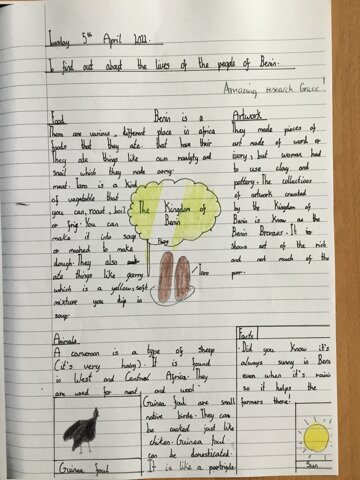 Tuesday 5th April 2022.
To find out about the lives of the people of Benin.
Amazing research Grace!
Food
There are various, different
foods that they ate
They ate things like
snail which they
meat. Taro is a kind
of vegetable that
you can, roast, boil
or fry. You can
make it into soup
or mashed to make
dough. They also
ate things like garry
which is a yellow, soft
mixture you dip in
soup.
Benin is a
place in africa
that has their
own roaylty and
army.
The Kingdom of
Benin
Taro
Artwork
They made pieces of
art made of wood or
ivory, but woman had
to use clay and
pottery. The collections
of artwork created
by the Kingdom of
Benin is know as the
Benin Bronzes. It
shows art of the rich
and not much of the
poor.
Animals
A cameroon is a type of sheep
(it's very hairy). It is found
in West and Central Africa. They
are used for meat and wool.
Guinea foul
Guinea foul are small
native birds. They can
be cooked just like
chicken. Guinea foul
can be domesticated.
It is like a partridge.
Facts
Did you know it's
always sunny in Benin
even when it's
so it helps the
farmers there!
Sun